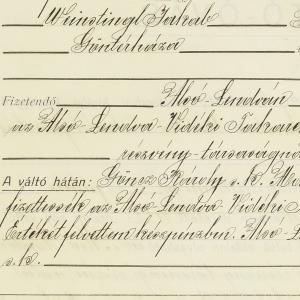 Weinstingl Jakab
Günterháza
Fizetendő Alsó-Lendván
az Alsó Lendva-Vidéki Takaré
részvény-társaságná
A váltó hátán: Göncz Károly s. k. Má
fizettessék az Alsó Lendva Vidéki
Értékét felvettem készpénzben. Alsó-L
s.k.